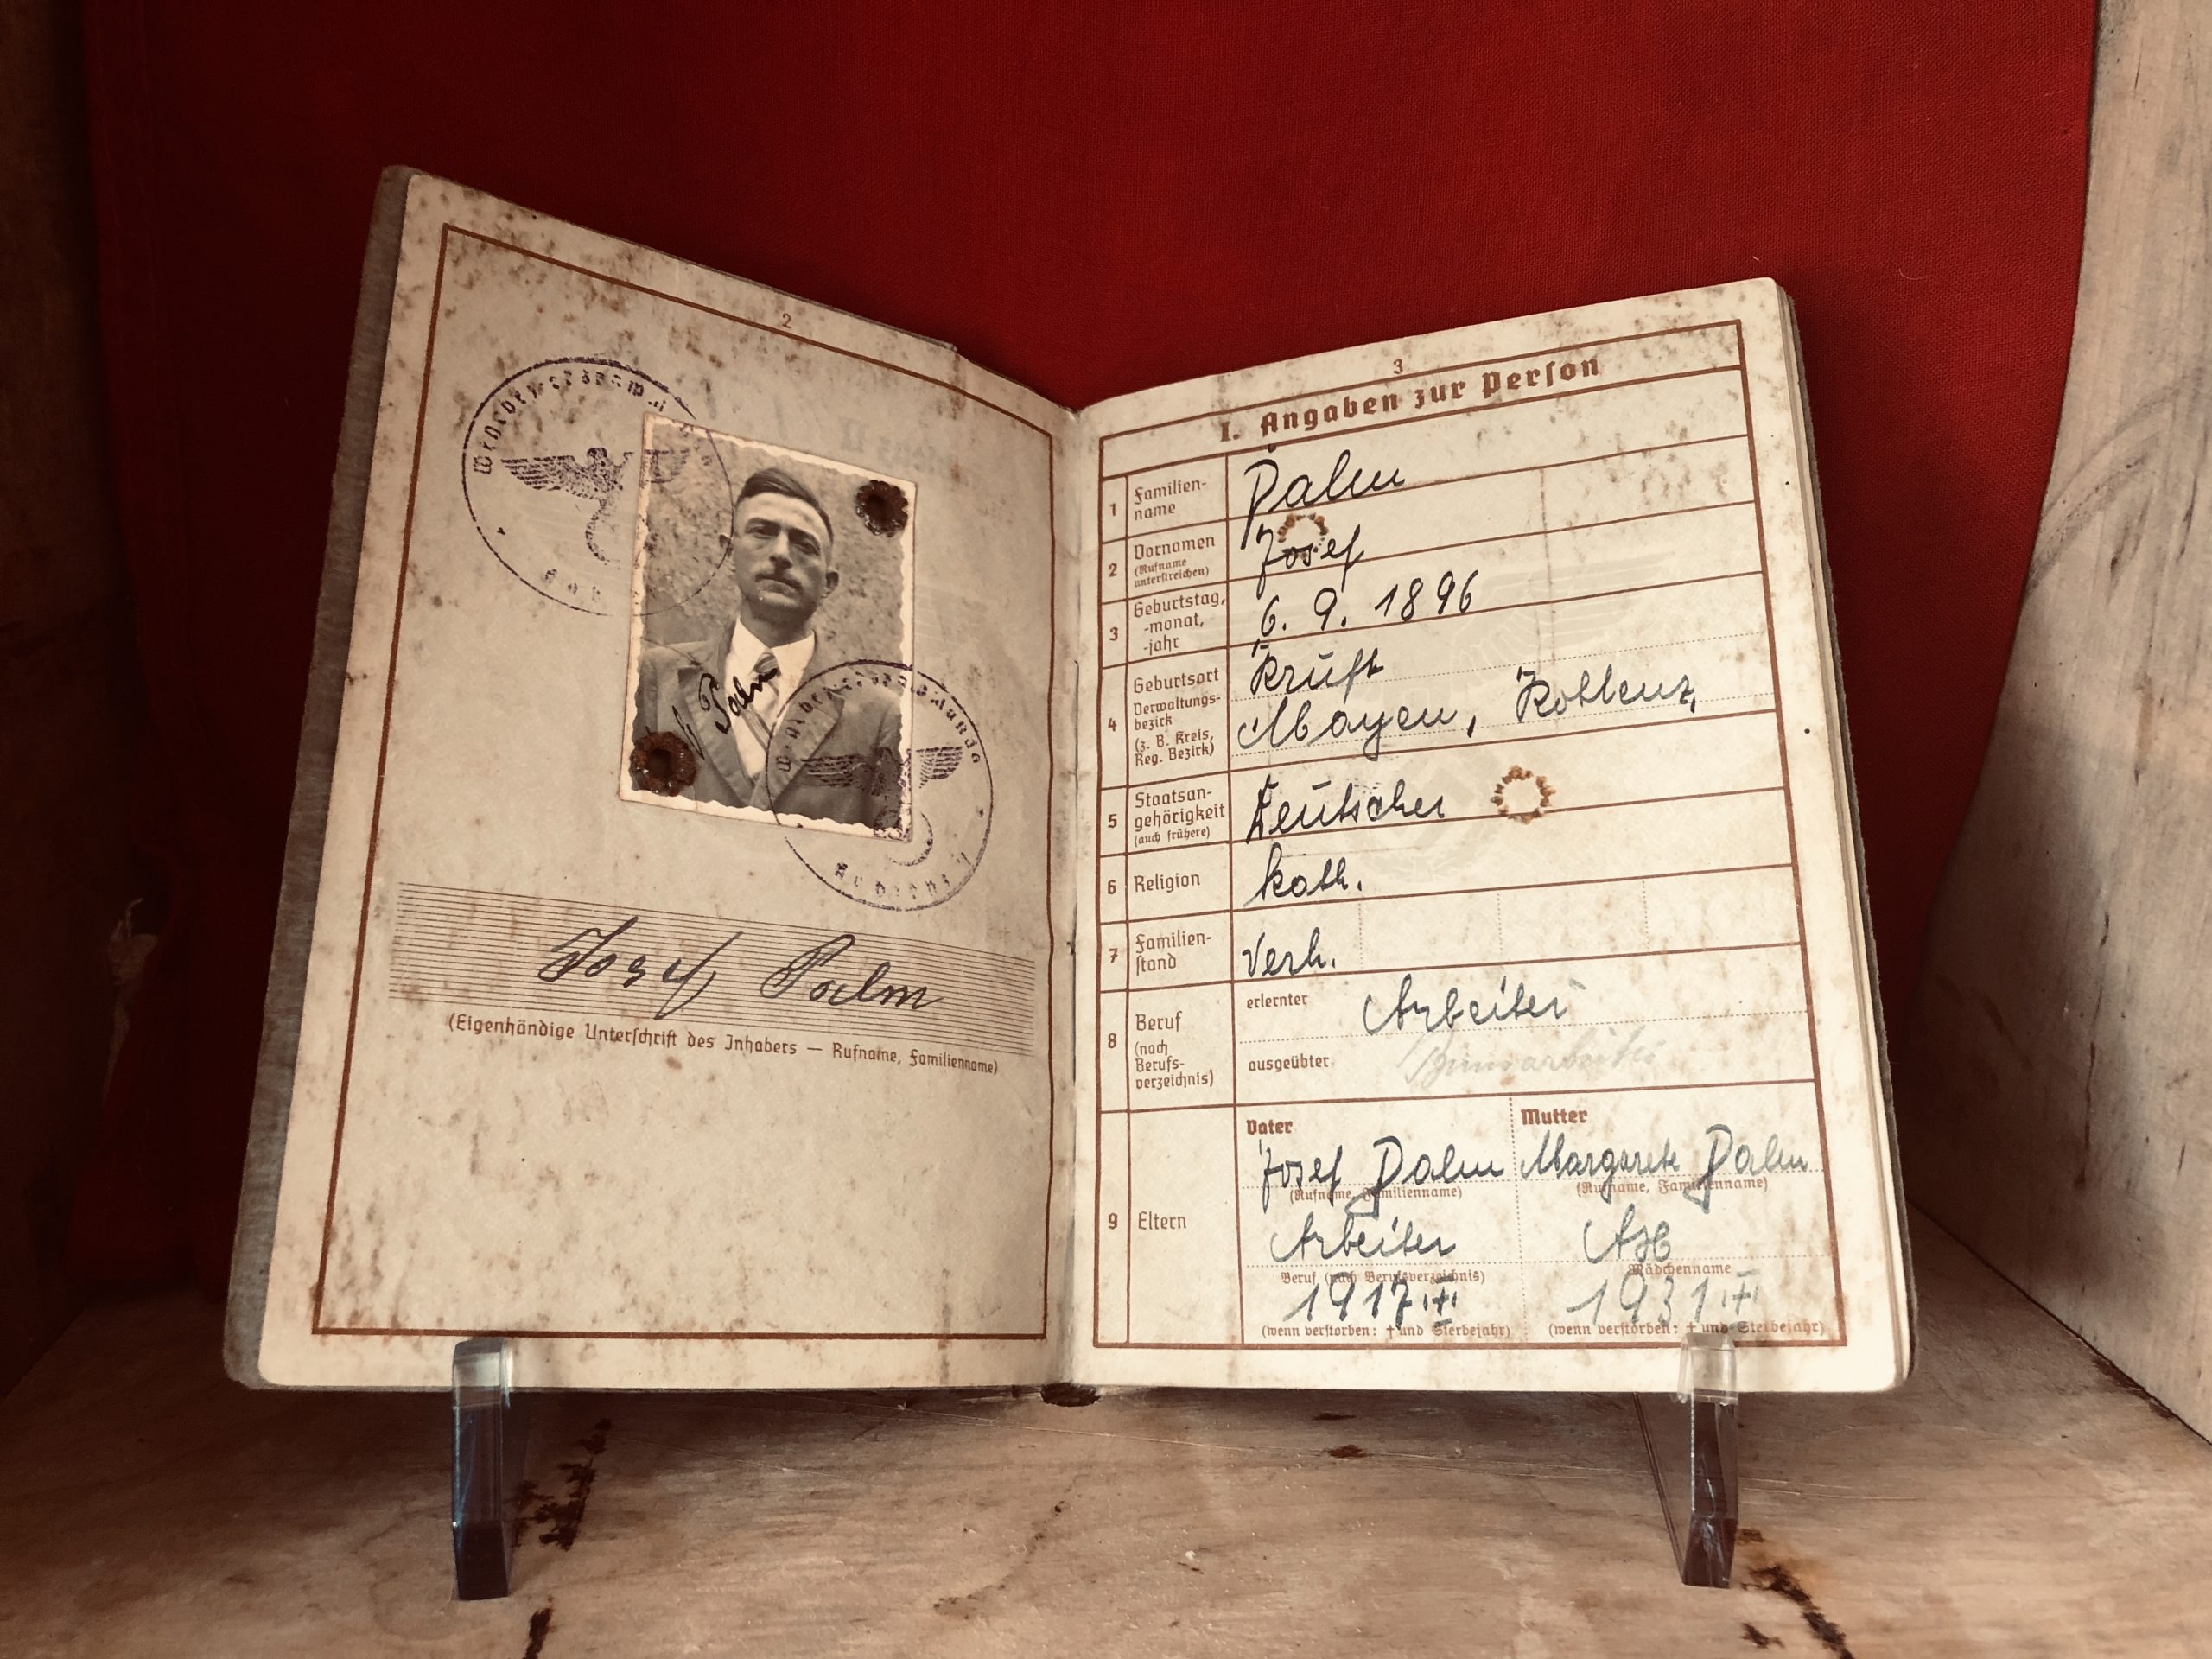 2
Josef Palm
(Eigenhändige Unterschrift des Inhabers — Rufname, Familienname)
J. Palm
3
I. Angaben zur Person
1 Familien-
name
Palm
2 Vornamen
(Rufname
unterstreichen)
Josef
3 Geburtstag,
-monat,
-jahr
6. 9. 1896
4 Geburtsort
Verwaltungs-
bezirk
(z. B. Kreis,
Reg. Bezirk)
Kruft
Mayen, Koblenz
5 Staatsan-
gehörigkeit
(auch frühere)
Deutscher
6 Religion
kath.
7 Familien-
stand
verh.
8 Beruf
(nach
Berufs-
verzeichnis)
erlernter Arbeiter
ausgeübter Bimsarbeiter
9 Eltern
Vater Mutter
Josef Palm Margarete Palm
(Rufname, Familienname) (Rufname, Familienname)
Arbeiter
Beruf (nach Berufsverzeichnis) Mädchenname
1917 † 1931 †
(wenn verstorben: † und Sterbejahr) (wenn verstorben: † und Sterbejahr)